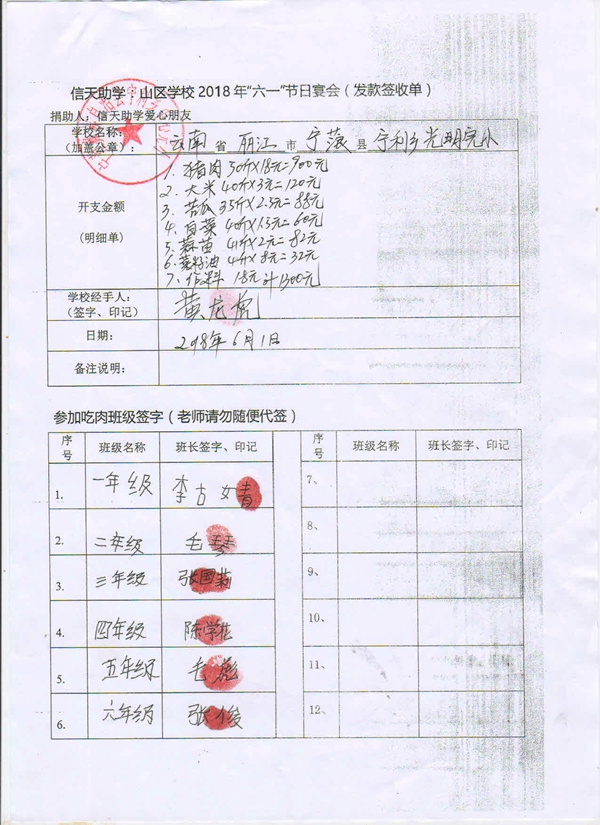 信天助学：山区学校2018年“六一”节日宴会（发款签收单）
捐助人：信天助学爱心朋友
学校名称：
（加盖公章）：
云南省丽江市宁蒗县宁利乡光明完小
开支金额
（明细单）
1、猪肉50斤X18元=900元
2、大米40斤X3元=120元
3、苦瓜35斤X2.5元=88元
4、白菜40斤X1.5元=60元
5、蒜苗41斤X2元=82元
6、菜籽油4斤X8元=32元
7、作料18元计1300元
学校经手人：
（签字、印记）
黄龙虎
日期：
2018年6月1日
备注说明：
参加吃肉班级签字（老师请勿随便代签）
序号 班级名称 班长签字、印记 序号 班级名称 班长签字、印记
1. 一年级 李古女青 7、
2. 二年级 毛琴 8、
3. 三年级 张国菊 9、
4. 四年级 陈学花 10、
5. 五年级 毛彪 11、
6. 六年级 张俊 12、